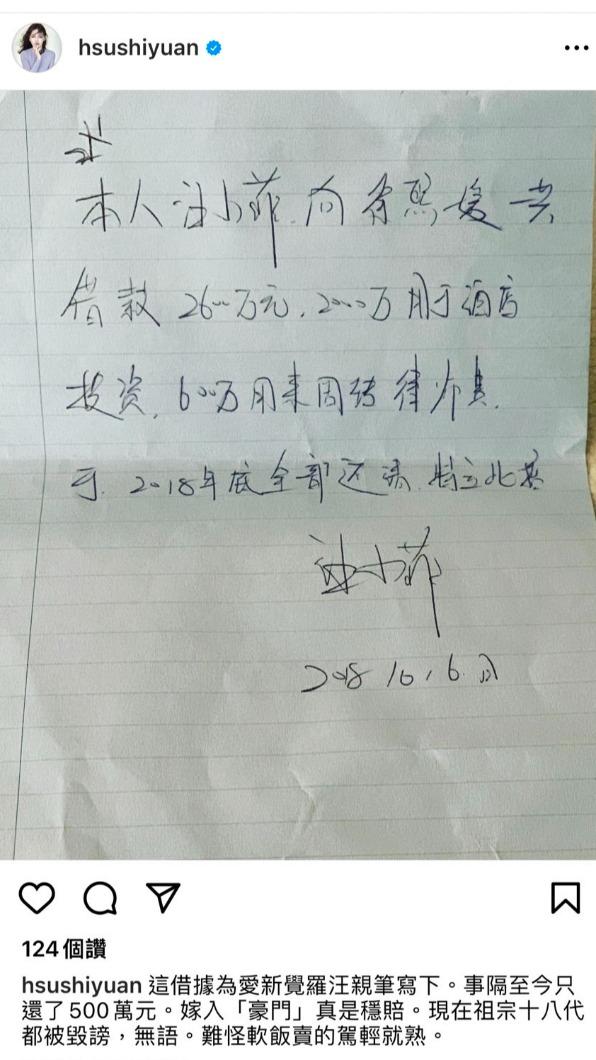 hsushiyuan
本人汪小菲.向徐熙媛共
借款 2600万元, 2000万用于酒店
投资, 600万用来周转律师费.
于.2018年底全部还清.特立此
汪小菲
2018 10, 6.日
124個讚
hsushiyuan 這借據為愛新覺羅汪親筆寫下。事隔至今只
還了500萬元。嫁入「豪門」真是穩賠。現在祖宗十八代
都被毀謗，無語。難怪軟飯賣的駕輕就熟。